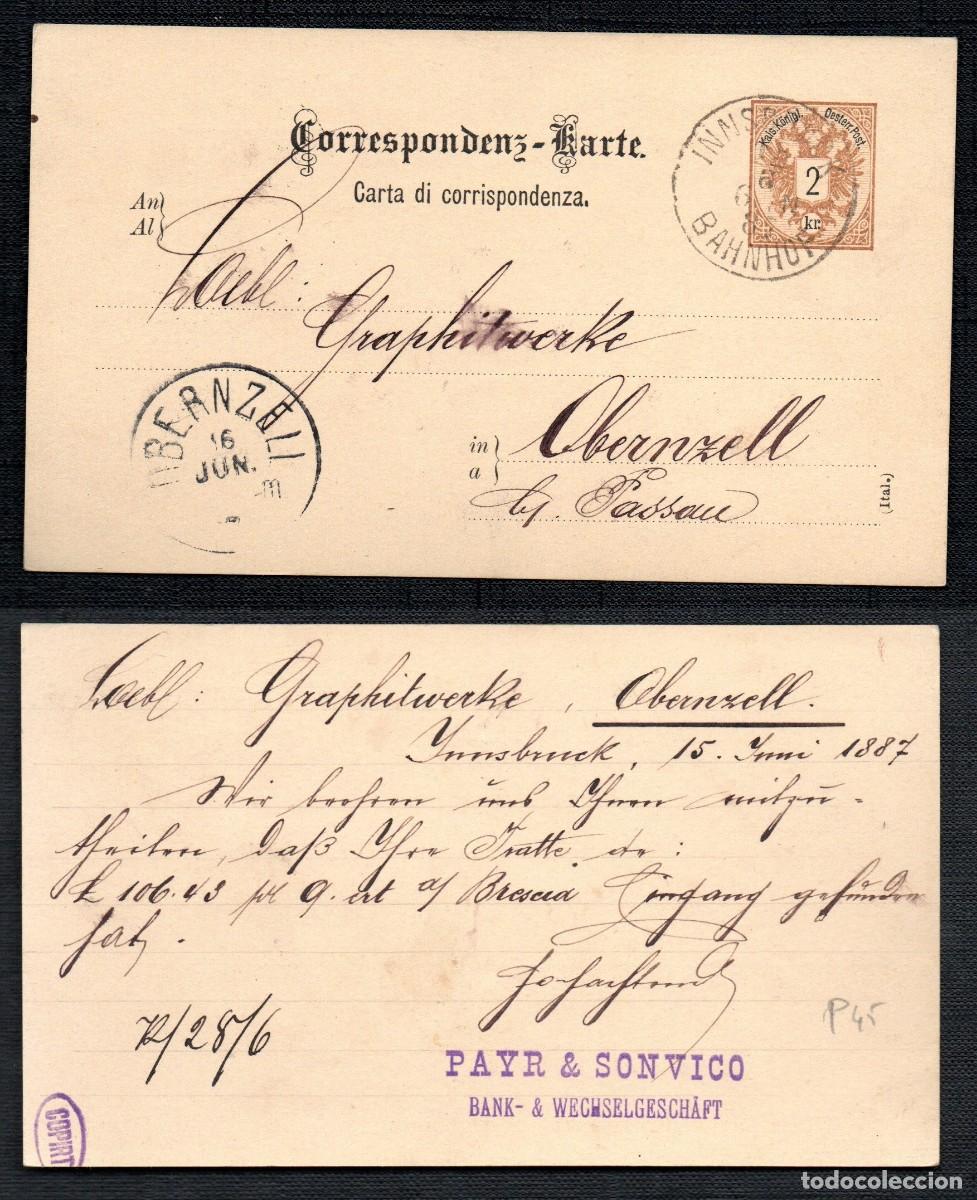 Correspondenz-Karte.
Carta di corrispondenza.
Kais. Königl. Oesterr. Post.
2
kr.
BAHNHOF
An
Al
Loebl: Graphitwerke
in
a
Obernzell
b/. Passau
(Ital.)
OBERNZELL
16
JUN.
Loebl: Graphitwerke, Obernzell.
Innsbruck, 15. Juni 1887
Wir beehren uns Ihnen mitzu-
theilen, daß Ihre Tratte de:
£ 106.43 pr 9. crt a/ Brescia Eingang gefunden
hat.
Hochachtend
P 45
28/6
PAYR & SONVICO
BANK- & WECHSELGESCHÄFT
COPIRT
todocoleccion